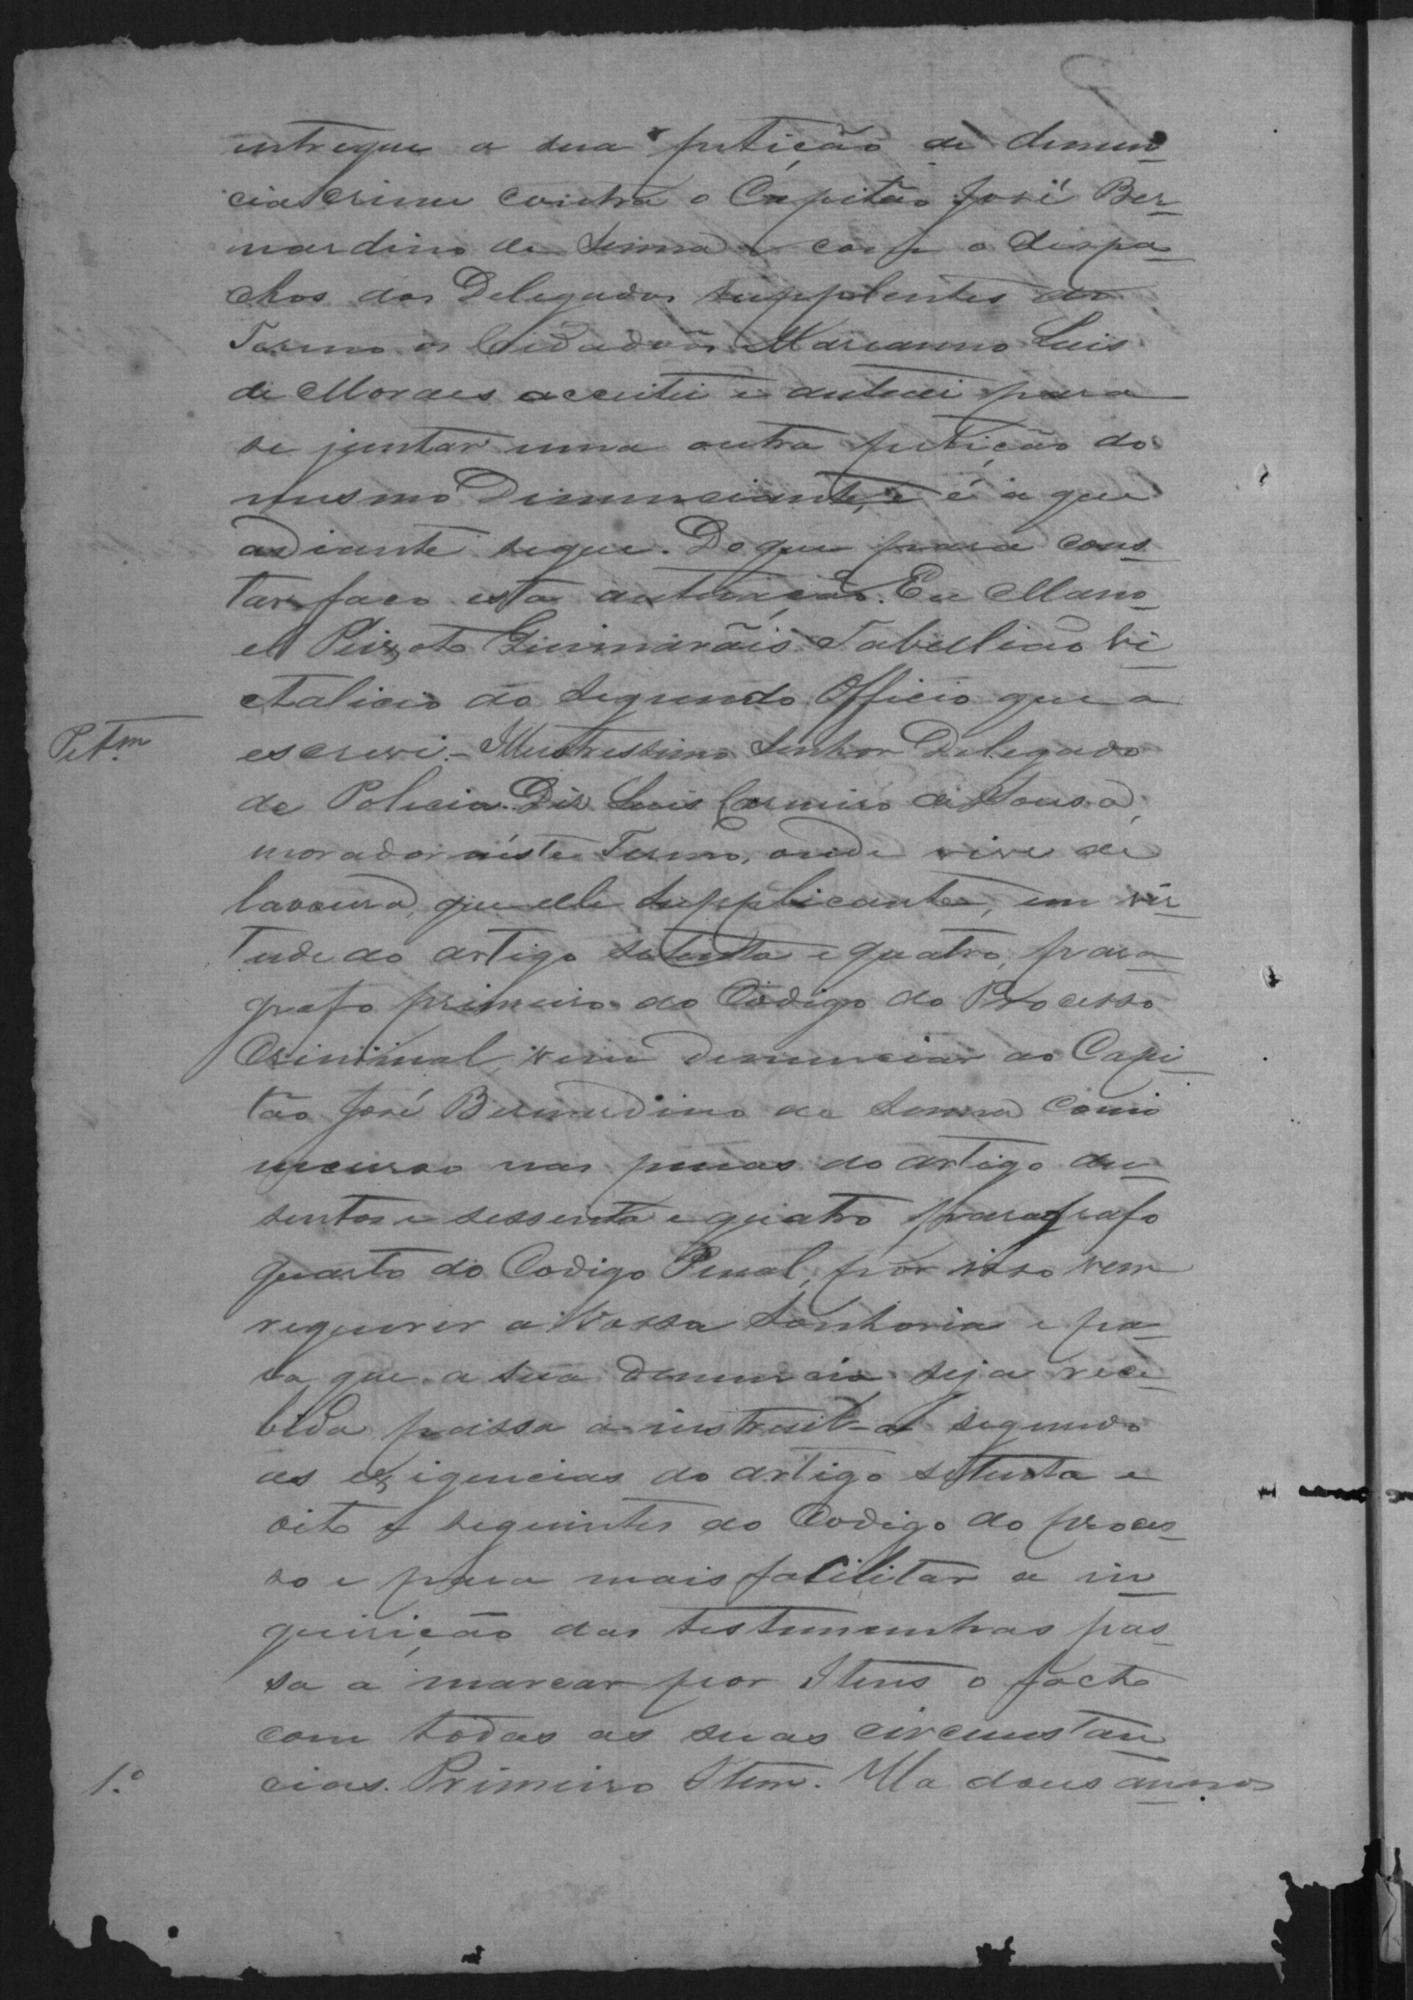 entregue a sua petição de denun-
cia crime contra o Capitão José Ber-
nardino de Senna e com o despa-
chos dos Delegados supplentes do
Termo os Cidadãos Marianno Luis
de Moraes acceitei e autuei para
se juntar uma outra petição do
mesmo Denunciante, e é a que
adiante segue. Do que para cons-
tar faço esta autuação. Eu Mano-
el Peixoto Guimarãis Tabellião vi-
talicio do segundo Officio que o
Petam
escrevi. - Illustrissimo Senhor Delegado
de Policia. Diz Luis Carneiro de Sousa,
morador néste Termo, onde vive de
lavoura, que elle Supplicante, em vir-
tude do artigo setenta e quatro, para-
grafo primeiro do Codigo do Processo
Criminal, vem denunciar ao Capi-
tão José Bernardino de Senna como
incurso nas penas do artigo du-
sentos e sessenta e quatro paragrafo
quarto do Codigo Penal, por isso vem
requerer a Vossa Senhoria e pa-
ra que a sua denuncia seja rece-
bida passa a instruil-a segundo
as exigencias do artigo setenta e
oito e seguintes do Codigo do proces-
so e para mais facilitar a in-
quirição das testemunhas pas-
sa a marcar por Itens o facto
com todas as suas circunstan-
1.º
cias. Primeiro Item. Ha dous annos